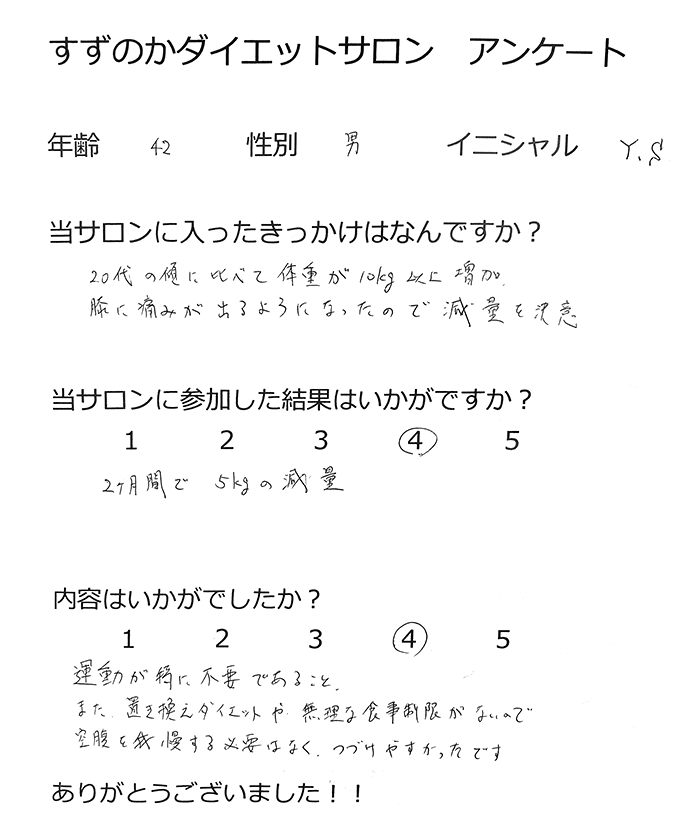 すずのかダイエットサロン　アンケート
年齢　42　性別　男　イニシャル　Y.S
当サロンに入ったきっかけはなんですか？
20代の頃に比べて体重が10kg以上増加.
膝に痛みが出るようになったので減量を決意
当サロンに参加した結果はいかがですか？
1 2 3 4 5
2ヶ月間で 5kgの減量
内容はいかがでしたか？
1 2 3 4 5
運動が特に不要であること.
また、置き換えダイエットや、無理な食事制限がないので
空腹を我慢する必要はなく、つづけやすかったです
ありがとうございました！！